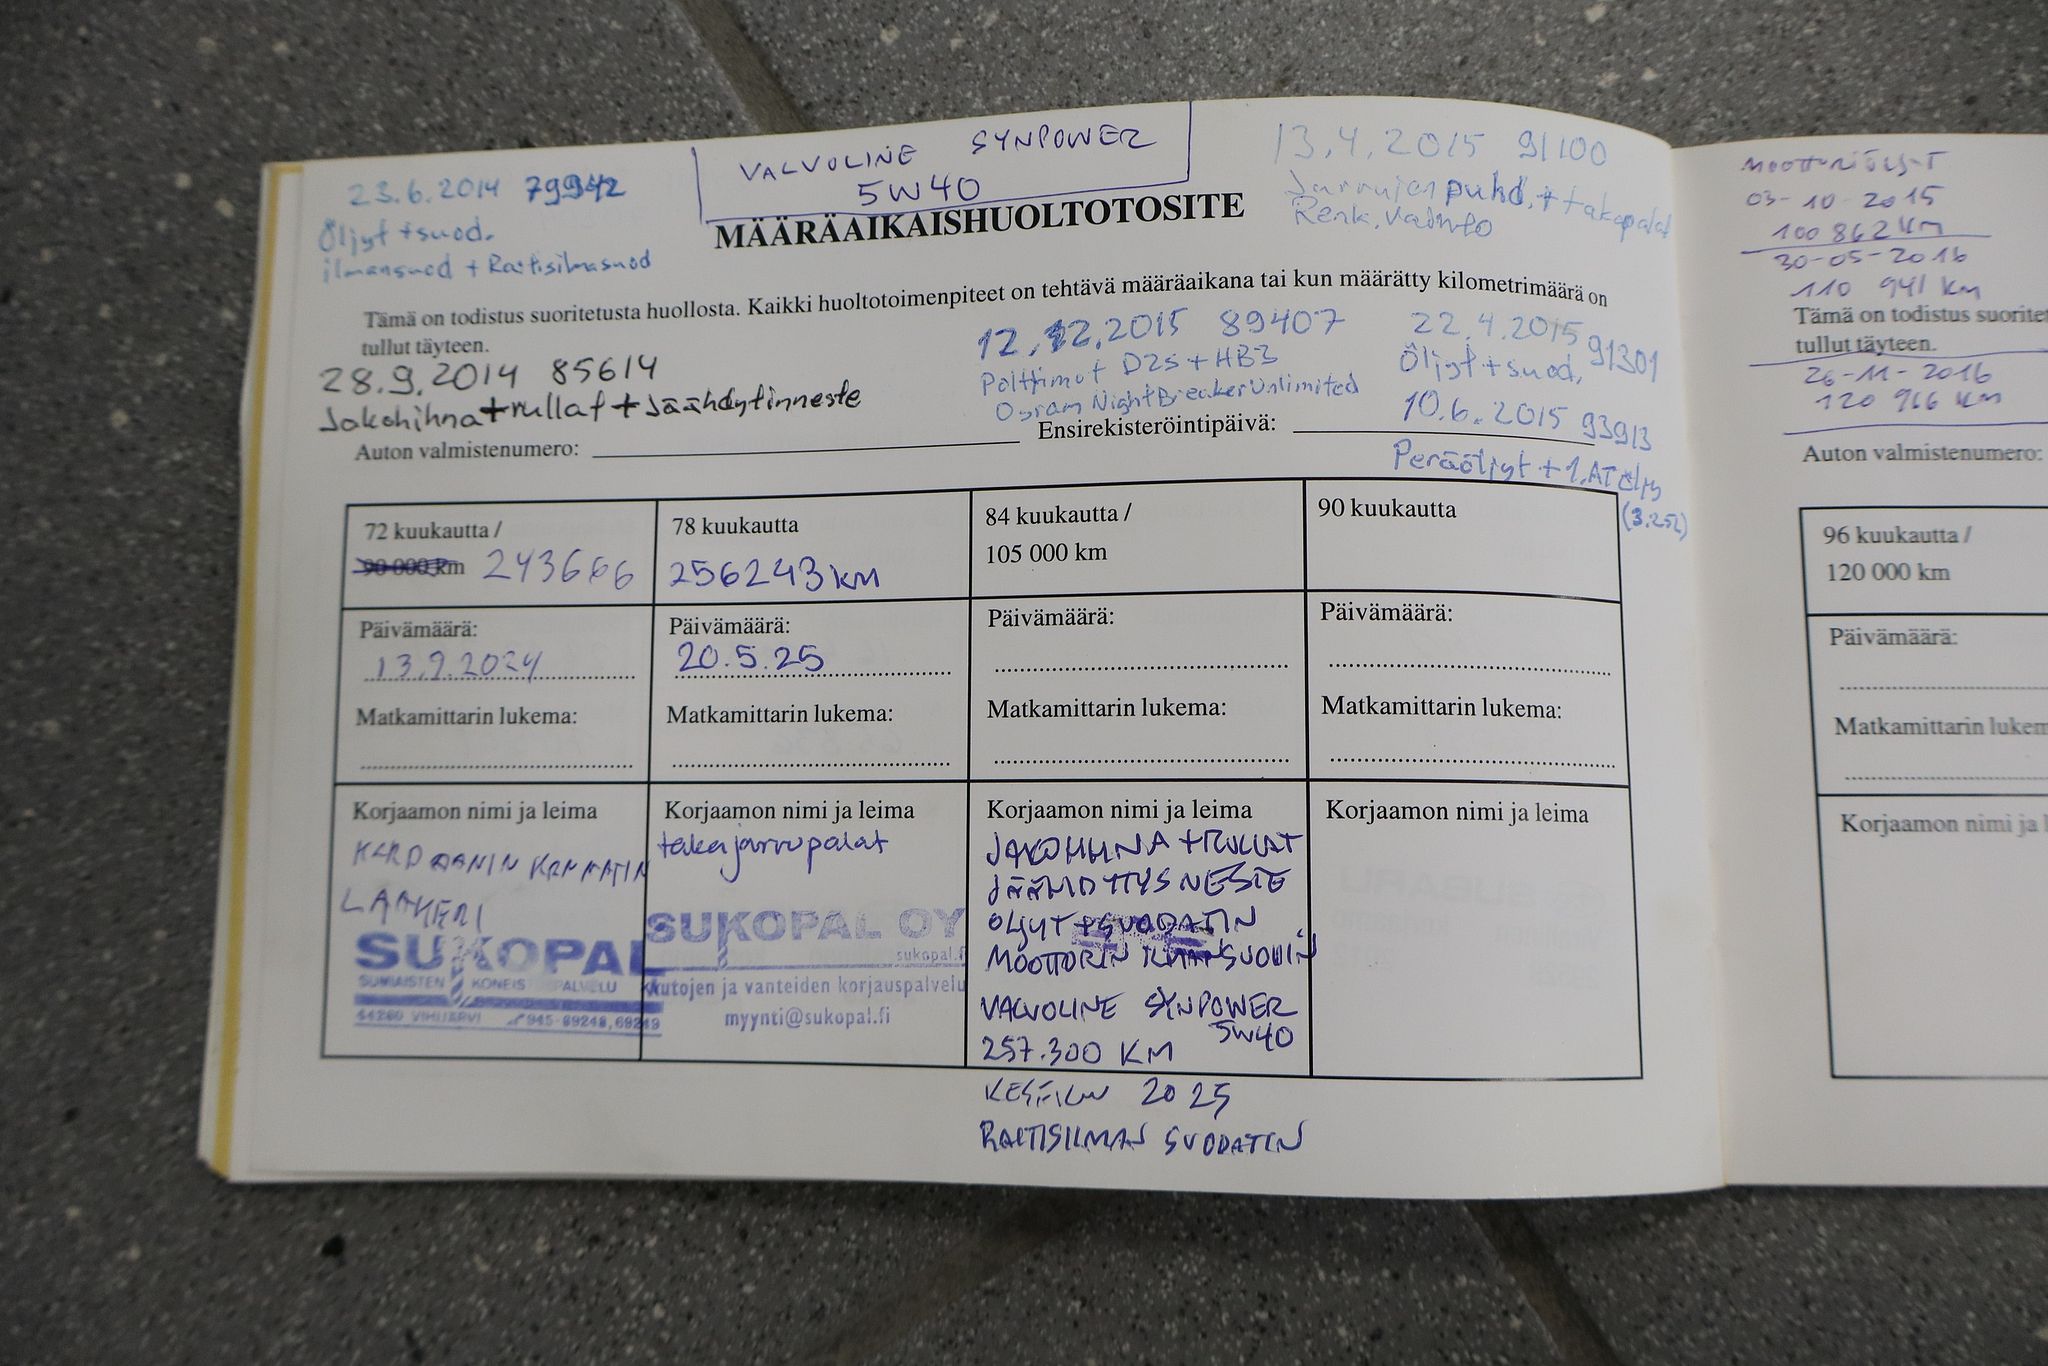 VALVOLINE SYNPOWER
5W40
23.6.2014 79942
Öljyt + suod.
ilmansuod + Raitisilmasuod
13.4.2015 91100
Jarrujen puhd. + takapalat
Renk. vaihto
MÄÄRÄAIKAISHUOLTOTOSITE
Tämä on todistus suoritetusta huollosta. Kaikki huoltotoimenpiteet on tehtävä määräaikana tai kun määrätty kilometrimäärä on
tullut täyteen.
28.9.2014 85614
Jakohihna + rullat + Jäähdytinneste
12.12.2015 89407
Polttimot D2s + HB3
Osram NightBreaker Unlimited
22.4.2015 91301
Öljyt + suod.
10.6.2015 93913
Peräöljyt + 1. AT öljy
(3.25L)
Auton valmistenumero:
Ensirekisteröintipäivä:
72 kuukautta /
90 000 km 243666
Päivämäärä:
13.9.2024
Matkamittarin lukema:
Korjaamon nimi ja leima
KARDAANIN KANNATIN
LAAKERI
SUKOPAL
SUMIAISTEN KONEISTUSPALVELU
44280 945-69248, 69249
78 kuukautta
256243 KM
Päivämäärä:
20.5.25
Matkamittarin lukema:
Korjaamon nimi ja leima
takajarrupalat
SUKOPAL OY
sukopal.fi
Autojen ja vanteiden korjauspalvelu
myynti@sukopal.fi
84 kuukautta /
105 000 km
Päivämäärä:
Matkamittarin lukema:
Korjaamon nimi ja leima
JAKOHIHNA + RULLAT
JÄÄHDYTYSNESTE
ÖLJYT + SUODATIN
MOOTTORIN ILMANSUODIN
VALVOLINE SYNPOWER
5W40
257.300 KM
KESÄKUU 2025
RAITISILMAN SUODATIN
90 kuukautta
Päivämäärä:
Matkamittarin lukema:
Korjaamon nimi ja leima
MOOTTORIÖLJYT
03-10-2015
100 862 KM
30-05-2016
110 941 KM
Tämä on todistus
tullut täyteen.
26-11-2016
120 966 KM
Auton valmistenumero:
96 kuukautta /
120 000 km
Päivämäärä:
Matkamittarin
Korjaamon nimi ja